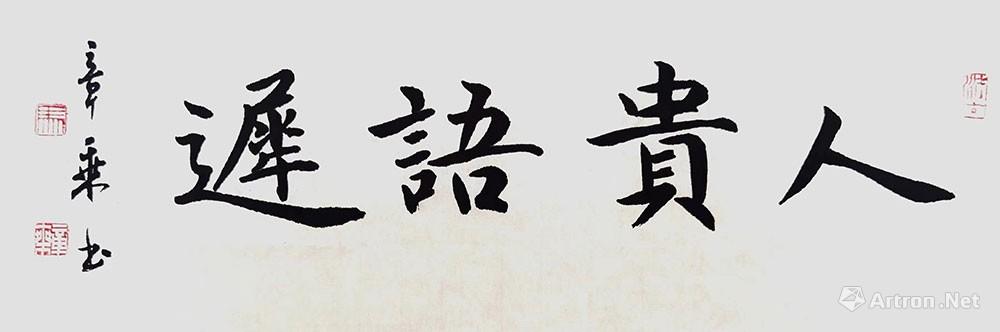 人貴語遲
章乘书
Artron.Net